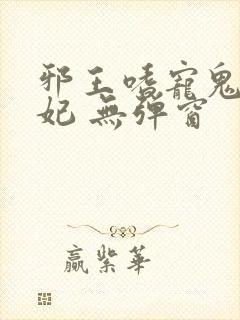 邪王嗜寵鬼
妃 無彈窗
贏紫華